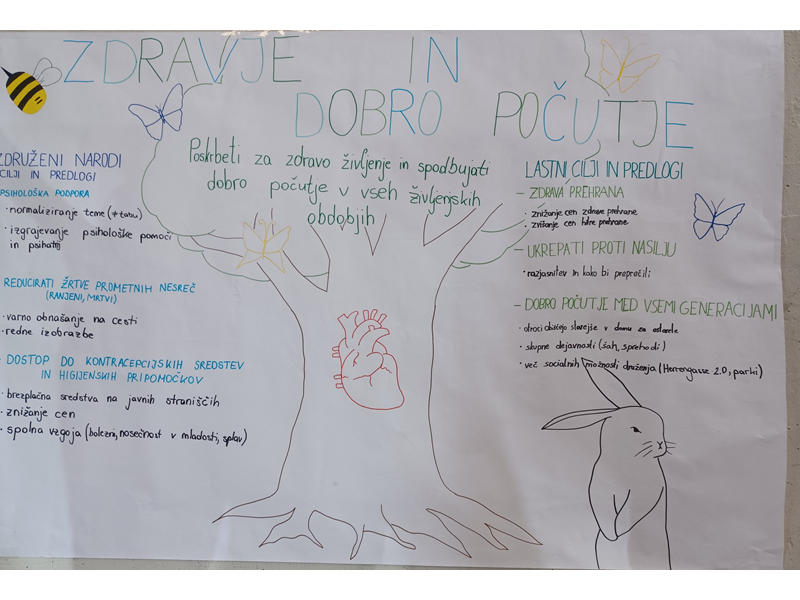 ZDRAVJE IN
DOBRO POČUTJE
Poskrbeti za zdravo življenje in spodbujati
dobro počutje v vseh življenjskih
obdobjih
ZDRUŽENI NARODI
CILJI IN PREDLOGI
PSIHOLOŠKA PODPORA
· normaliziranje teme (≠ tabu)
· izgrajevanje psihološke pomoči
in psihatrij
REDUCIRATI ŽRTVE PROMETNIH NESREČ
(RANJENI, MRTVI)
· varno obnašanje na cesti
· redne izobrazbe
- DOSTOP DO KONTRACEPCIJSKIH SREDSTEV
IN HIGIJENSKIH PRIPOMOČKOV
· brezplačna sredstva na javnih straniščih
· znižanje cen
· spolna vzgoja (bolezni, nosečnost v mladosti, splav)
LASTNI CILJI IN PREDLOGI
- ZDRAVA PREHRANA
· znižanje cen zdrave prehrane
· zvišanje cen hitre prehrane
- UKREPATI PROTI NASILJU
· razjasnitev in kako bi preprečili
- DOBRO POČUTJE MED VSEMI GENERACIJAMI
· otroci obiščejo starejše v domu za ostarele
· skupne dejavnosti (šah, sprehodi)
· več socialnih možnosti druženja (Herrengasse 2.0, parki)